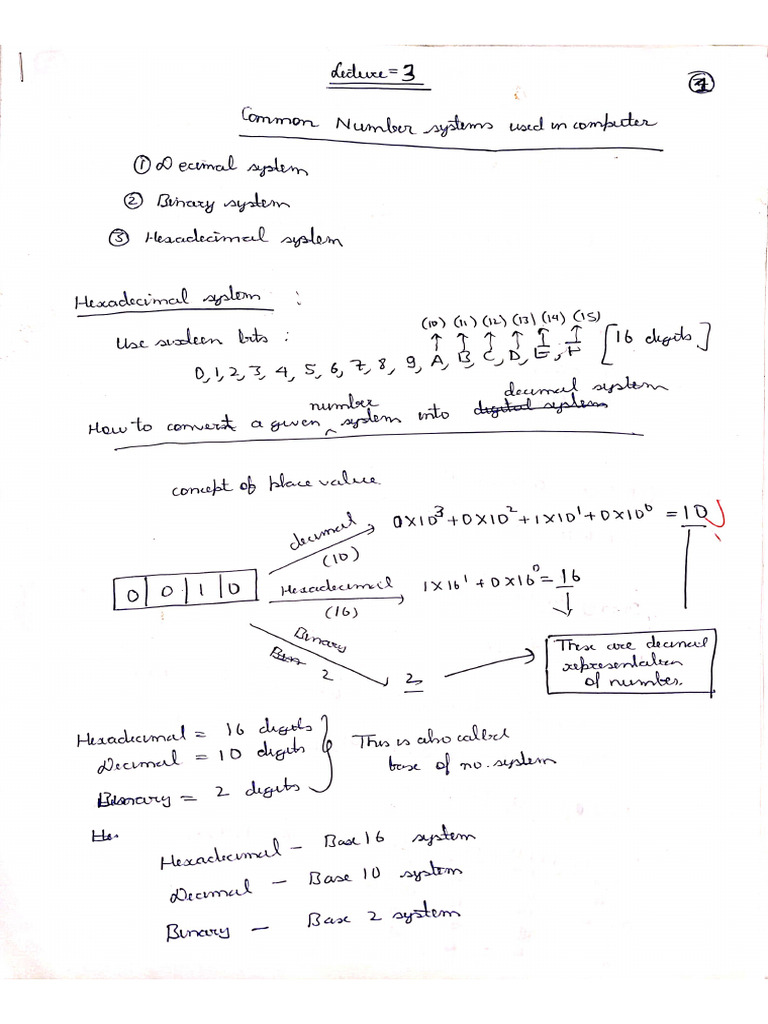 Lecture = 3
1
Common Number systems used in computer
① Decimal system
② Binary system
③ Hexadecimal system
Hexadecimal system :
(10) (11) (12) (13) (14) (15)
Use sixteen bits :
0, 1, 2, 3, 4, 5, 6, 7, 8, 9, A, B, C, D, E, F [16 digits]
number decimal system
How to convert a given ^ system into digital system
concept of place value.
decimal (10) 0×10³+0×10²+1×10¹+0×10⁰ = 10
0 0 1 0
Hexadecimal (16) 1×16¹+0×16⁰=16
Binary 2 2
These are decimal
representation
of number.
Hexadecimal = 16 digits
Decimal = 10 digits
Binary = 2 digits
This is also called
base of no. system
He.
Hexadecimal – Base 16 system
Decimal – Base 10 system
Binary – Base 2 system